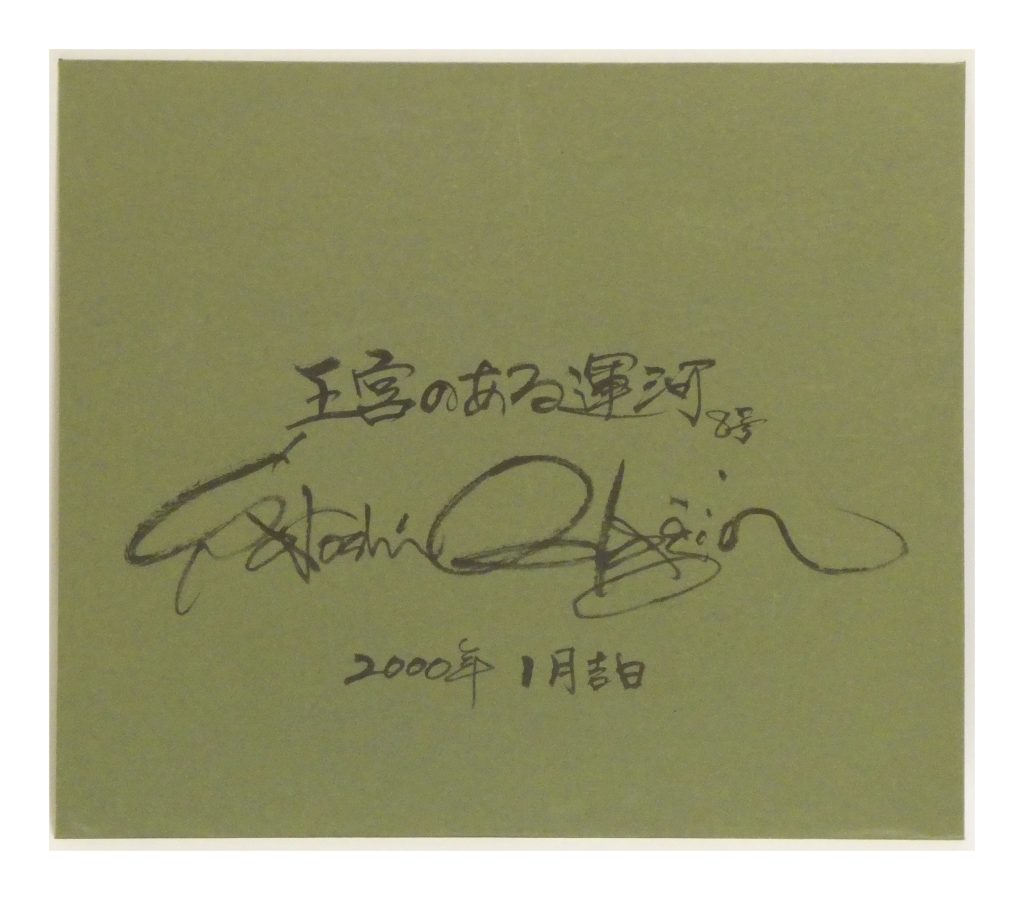 王宮のある運河 8号
Satoshi
2000年 1月吉日